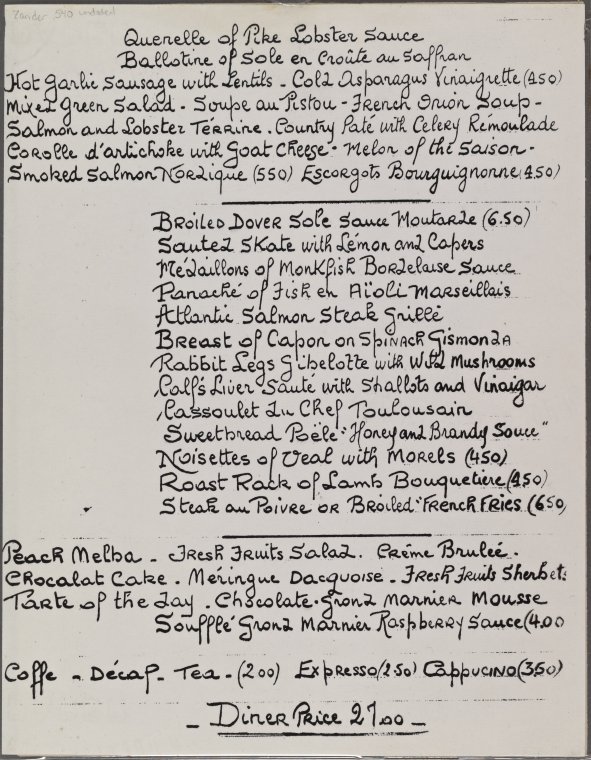 Zander 540 undated
Quenelle of Pike Lobster Sauce
Ballotine of Sole en Croûte au Saffran
Hot Garlic Sausage with Lentils - Cold Asparagus Vinaigrette (450)
Mixed Green Salad - Soupe au Pistou - French Onion Soup -
Salmon and Lobster Térrine . Country Paté with Celery Rémoulade
Corolle d'artichoke with Goat Cheese - Melon of the Saison -
Smoked Salmon Nordique (550) Escargots Bourguignonne (450)
Broiled Dover Sole Sauce Moutarde (6.50)
Sauted Skate with Lémon and Capers
Médaillons of Monkfish Bordelaise Sauce
Panaché of Fish en Aïoli Marseillais
Atlantic Salmon Steak Grillé
Breast of Capon on Spinach Gismonda
Rabbit Legs Gibelotte with Wild Mushrooms
Calf's Liver Sauté with Shallots and Vinaigar
Cassoulet du Chef Toulousain
Sweetbread Poële "Honey and Brandy Souce"
Noisettes of Veal with Morels (450)
Roast Rack of Lamb Bouquetière (450)
Steak au Poivre or Broiled "French Fries (650)
Peach Melba - Fresh Fruits Salad . Créme Bruleé .
Chocalat Cake . Méringue Dacquoise . Fresh Fruits Sherbet.
Tarte of the day . Chocolate . Grond Marnier Mousse
Soufflé Grond Marnier Raspberry Sauce (4.00
Coffe - Décaf - Tea - (200) Expresso (250) Cappucino (350)
- Diner Price 27.00 -